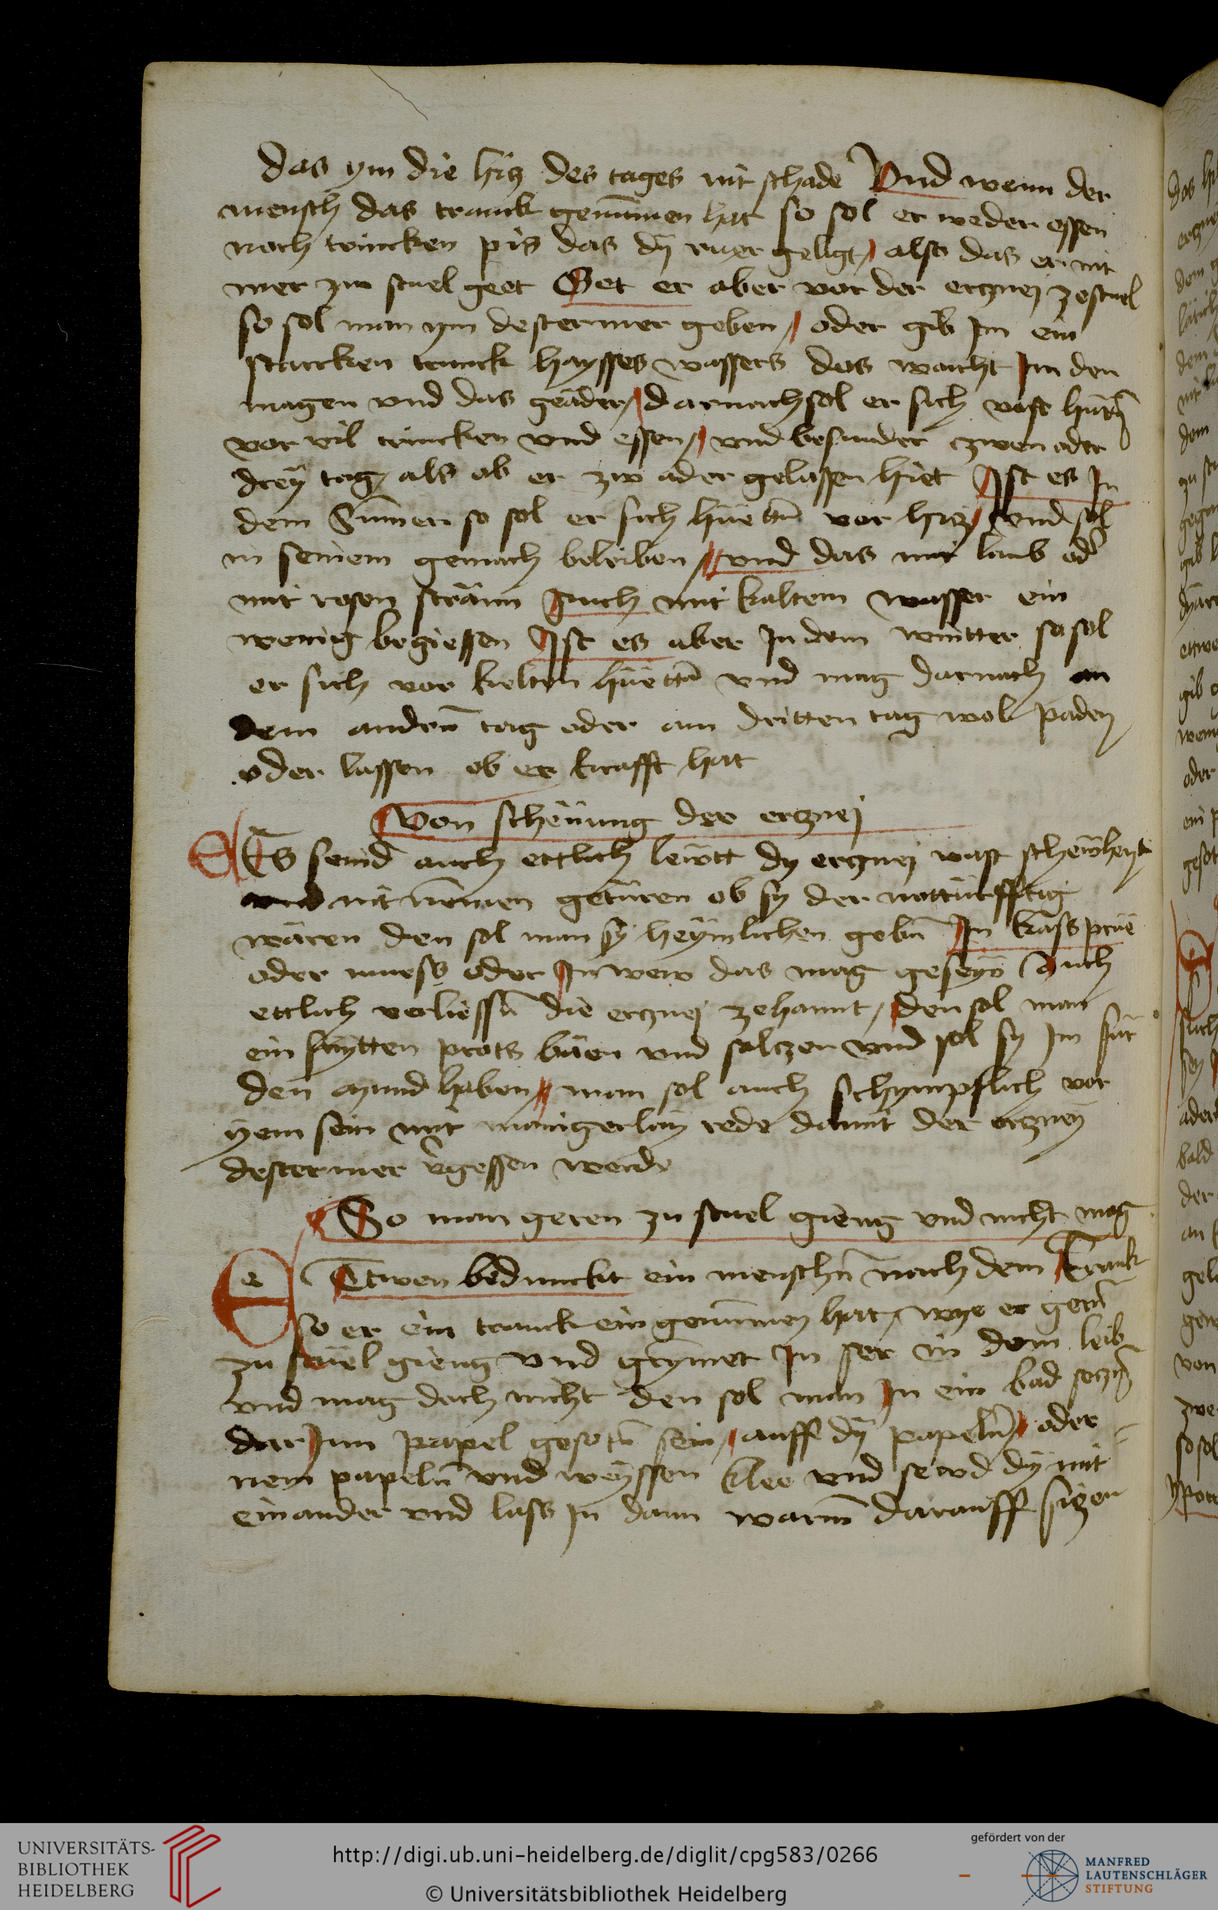 das ym die hicz des tages nit schade Vnd wenn der
mensch das tranck genummen hat so sol er weder essen
noch trincken pis das dy ruer geligt / also das er nit
mer zw stuel geet Get er aber vor der erczney ze stuel
so sol man ym dester mer geben / oder gib Im ein
starcken trunck haysses wassers das waicht Im den
magen vnd das geäder / darnach sol er sich vast hütn
vor vil trincken vnd essen / vnd besunder zwen oder
drey tag / als ob er zw ader gelassen hiet Ist es In
dem Summer so sol er sich hüettn vor hicz / vnd sol
in seinem gemach beleiben / vnd das mit laub od
mit rosen sträun Auch mit kaltem wasser ein
wenig begiessen Ist es aber In dem wintter so sol
er sich vor kelten hüettn vnd mag darnach an
dem andern tag oder am dritten tag wol paden
oder lassen ob er krafft hat
Von scheüung der erczney
Es seind auch ettlich lewtt dy erczney vast schewhent
vnd nit nemen getüren ob sy der nottürfftig
wären den sol man sy heymlichen gebn In käss prüe
oder muess oder In wein das mag gesein Auch
ettlich verliessn die erczney zehannt / den sol man
ein snytten prots bäen vnd salczen vnd sol sy Im für
den mund haben / man sol auch schympflich vor
yem sein mit manigerlay rede damit der erczney
dester mer vgessen werde
So man geren zu stuel gieng vnd nicht mag
e Etwen bedunckt ein menschn nach dem Tranck
so er ein tranck ein genummen hat / wye er gern
zu stuel gieng vnd grymet In ser in dem leib
vnd mag doch nicht den sol man In ein bad seczn
dar Inn papel gesotn sein / auff dy papeln / oder
nem papeln vnd weyssen klee vnd sewd dy mit
einander vnd lass In dann warm darauff siczen
UNIVERSITÄTS-
BIBLIOTHEK
HEIDELBERG
http://digi.ub.uni-heidelberg.de/diglit/cpg583/0266
© Universitätsbibliothek Heidelberg
gefördert von der
MANFRED
LAUTENSCHLÄGER
STIFTUNG